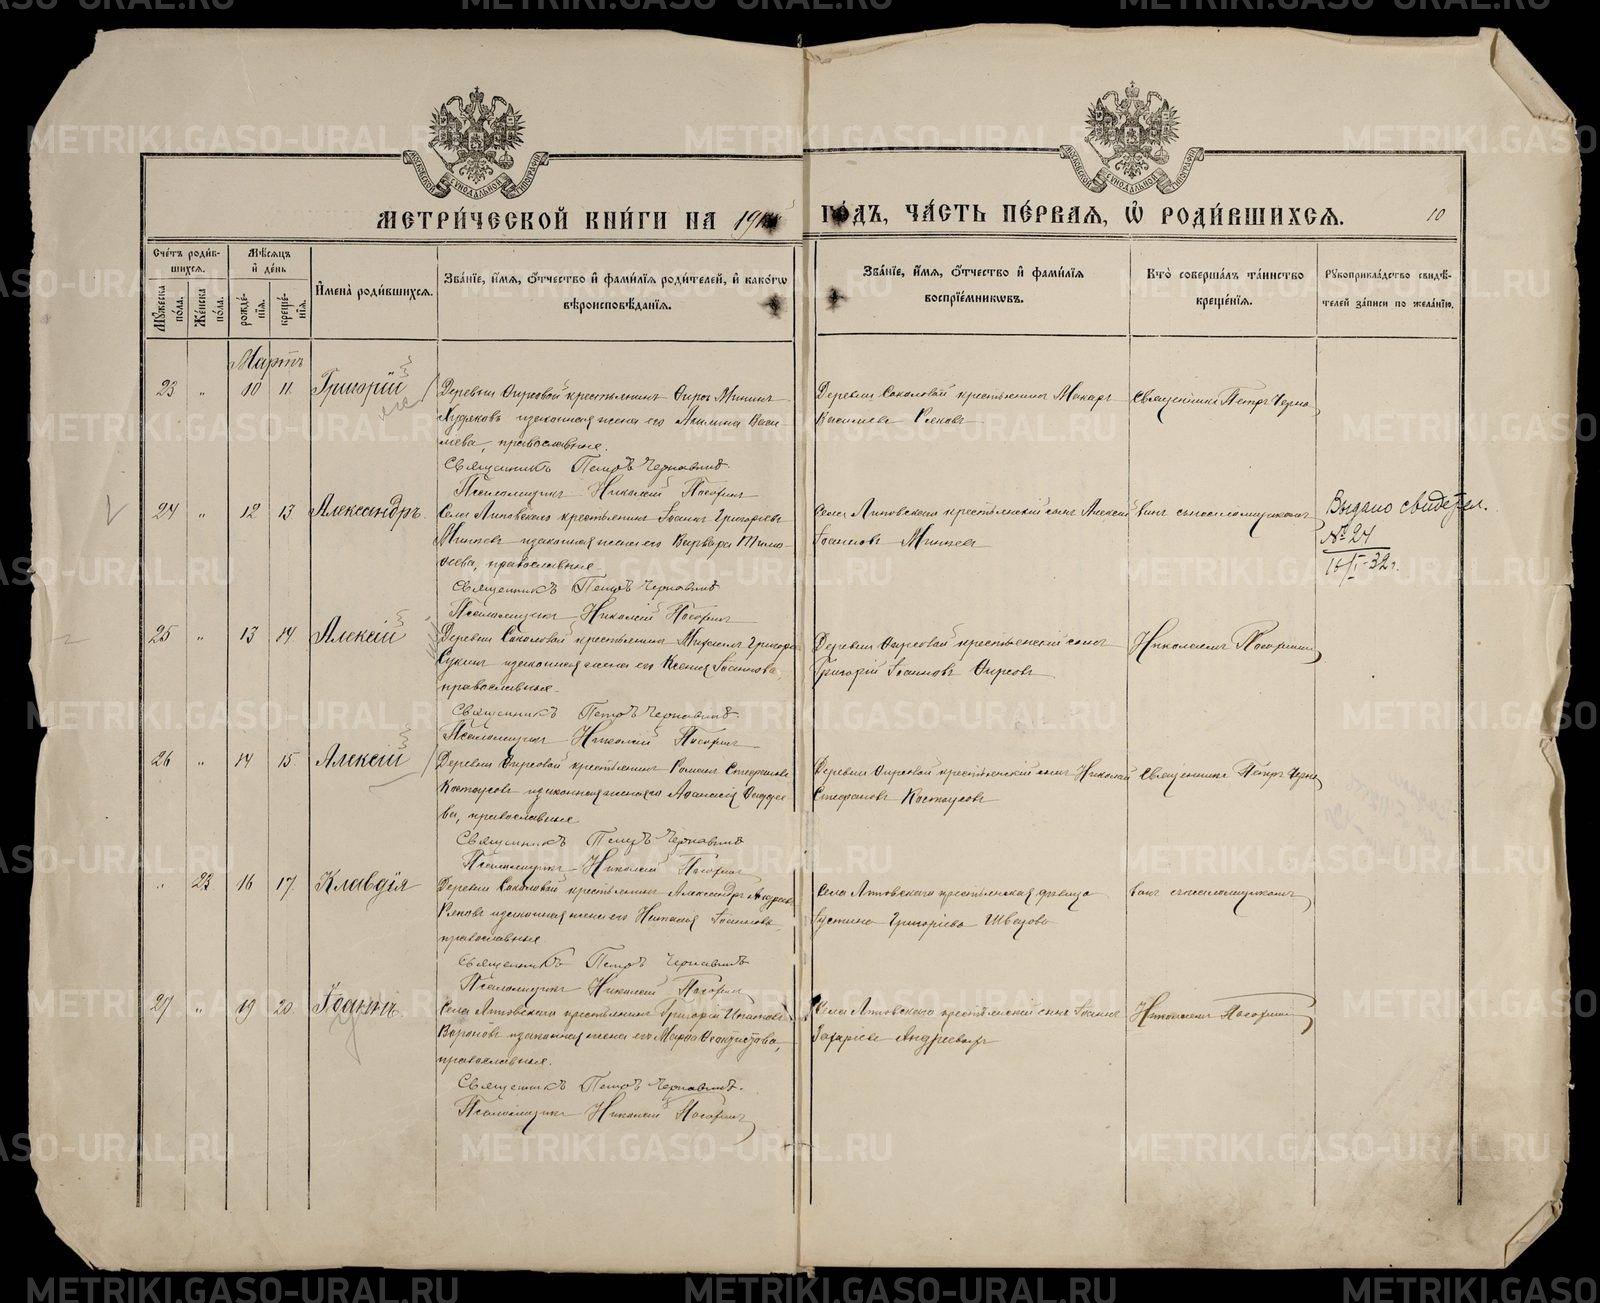 МЕТРИ́ЧЕСКОЙ КНИ́ГИ НА 191
ГО́ДЪ, ЧА́СТЬ ПЕ́РВАЯ, Ѡ҆ РОДИ́ВШИХСЯ.
10
Сче́тъ роди́в-
шихся.
Мѣ́сяцъ
и҆ де́нь
Мꙋ́жеска по́ла.
Же́нска по́ла.
рожде́-
нїя.
креще́-
нїя.
И҆мена̀ роди́вшихся.
Зва́нїе, и҆́мя, ѻ҆́тчество и҆ фами́лїя роди́телей, и҆ како́гѡ
вѣроисповѣ́данїя.
Зва́нїе, и҆́мя, ѻ҆́тчество и҆ фами́лїя
воспрїе́мникѡвъ.
Кто̀ соверша́лъ та́инство
креще́нїя.
Рꙋкоприкла́дство свидѣ́-
телей за́писи по жела́нїю.
Мартъ
23 " 10 11 Григорій
Деревни Фирсовой крестьянинъ Фирсъ Мининъ
Худяковъ и законная жена его Акилина Васи-
льева, православные.
Священникъ Петръ Чернавинъ.
Псаломщикъ Николай
Деревни Соколовой крестьянинъ Макаръ
Васильевъ
Священникъ Петръ Черна
24 " 12 13 Александръ
Села Липовского крестьянинъ Іоаннъ Григорьевъ
Минѣевъ и законная жена его Варвара Тимо-
ѳеева, православные
Священникъ Петръ Чернавинъ
Псаломщикъ Николай
Села Липовского крестьянскій сынъ Алексѣй
Іоанновъ Минѣевъ
съ псаломщикомъ
Выдано свидетел.
№ 24
16/I-32 г.
25 " 13 14 Алексій
Деревни Соколовой крестьянинъ Михаилъ Григорьевъ
и законная жена его Ксенія Іоаннова,
православные.
Священникъ Петръ Чернавинъ
Псаломщикъ Николай
Деревни Фирсовой крестьянскій сынъ
Григорій Іоанновъ Фирсовъ
Николаемъ
26 " 14 15 Алексій
Деревни Фирсовой крестьянинъ Романъ Стефановъ
Костоусовъ и законная жена его Аѳанасія
ва, православные
Священникъ Петръ Чернавинъ
Псаломщикъ Николай
Деревни Фирсовой крестьянскій сынъ Николай
Стефановъ Костоусовъ
Священникъ Петръ Черна
" 23 16 17 Клавдія
Деревни Соколовой крестьянинъ Александръ Андреевъ
и законная жена его Наталія Іоаннова,
православные
Священникъ Петръ Чернавинъ
Псаломщикъ Николай
Села Липовского крестьянская дѣвица
Іустина Григорьева Швецова
съ псаломщикомъ
27 " 19 20 Іоаннъ
Села Липовского крестьянинъ Григорій Игнатовъ
Вороновъ и законная жена его Марѳа
православные.
Священникъ Петръ Чернавинъ.
Псаломщикъ Николай
Села Липовского крестьянскій сынъ Іоаннъ
Захаріевъ
Николаемъ
METRIKI.GASO-URAL.RU